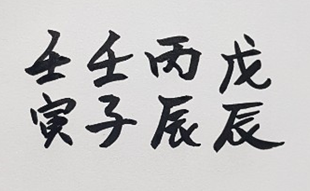 壬壬丙戊
寅子辰辰